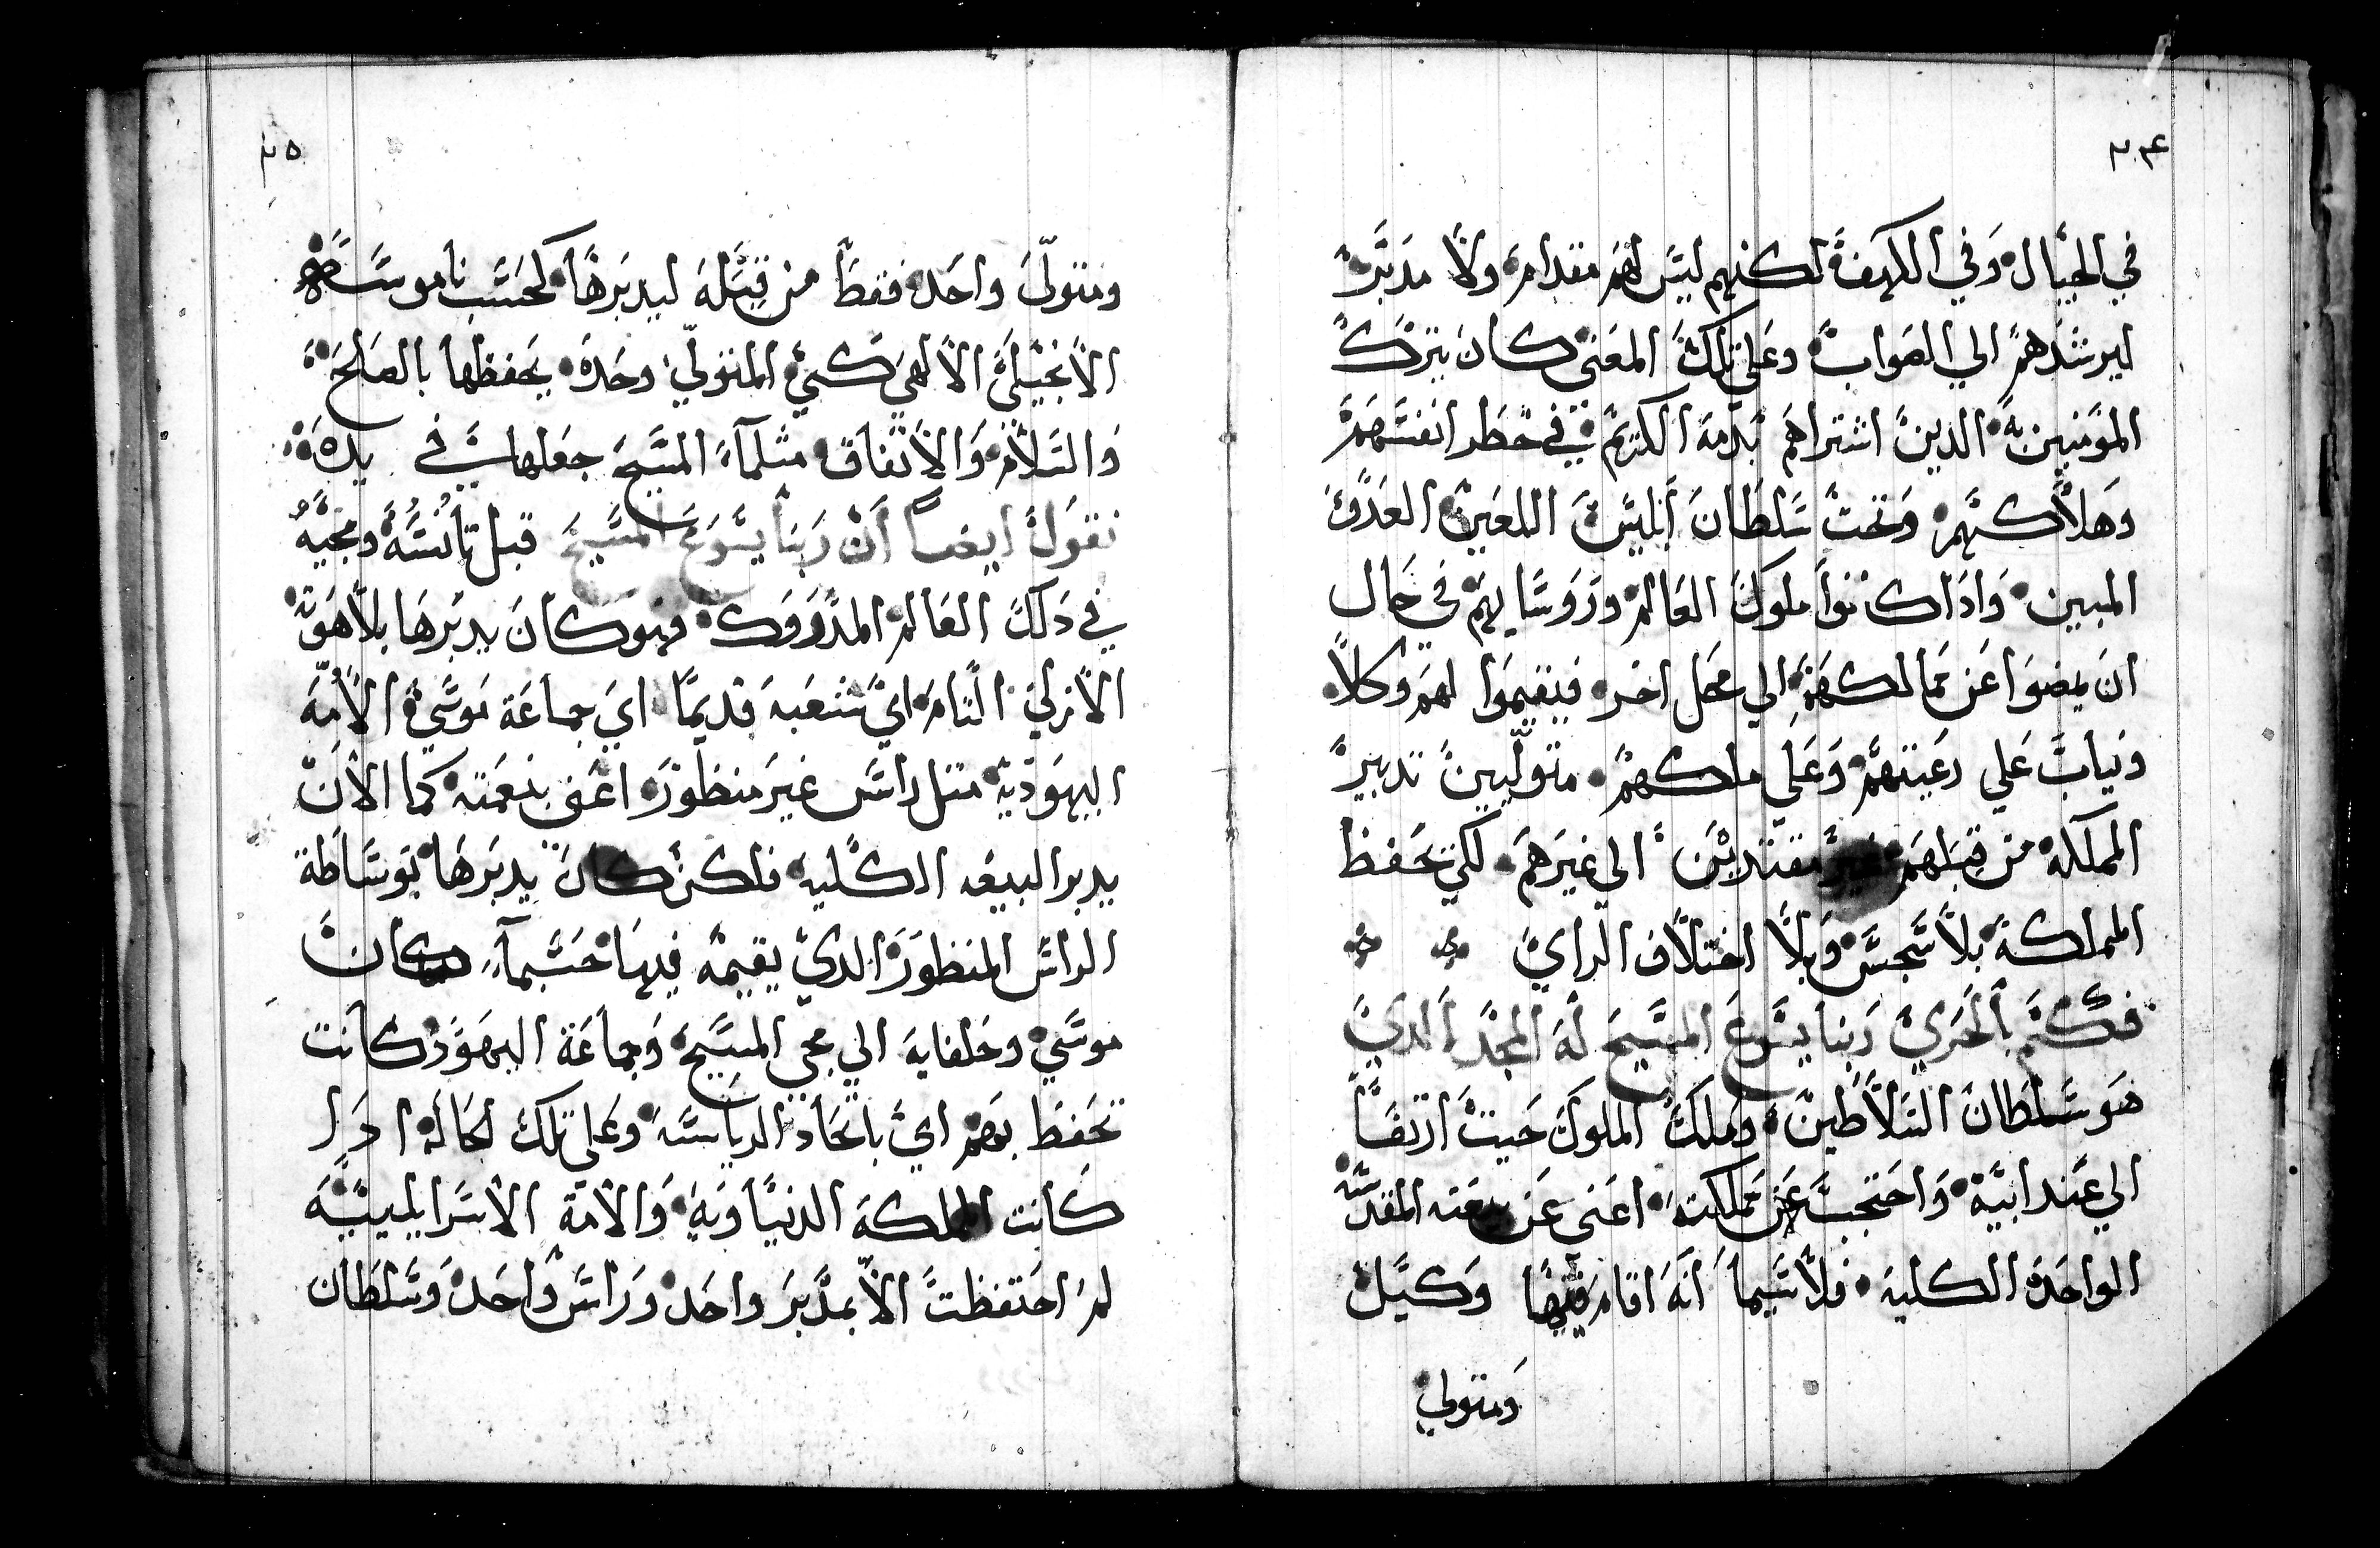 ٣٤
في الجبال وفي الكهف لكنهم ليس لهم مقدام ولا مدبر
ليرشدهم الي الصواب وعلي تلك المعني كان يترك
المومنين به الدين اشتراهم بدمه الكريم في خطر انفسهم
وهلاكهم وتحت سلطان ابليس اللعين العدو
المبين وادا كانوا ملوك العالم وروسايهم في حال
ان يمضوا عن ممالكهم الي محل اخر فيقيموا لهم وكلا
ونياب علي رعيتهم وعلي ملكهم متوليين تدبير
المملكة من قبلهم غير مفتقدين الي غيرهم لكي تحفظ
المملكة بلا سجس وبلا اختلاف الراي
فكم بالحري ربنا يسوع المسيح له المجد الدي
هو سلطان السلاطين وملك الملوك حيت ارتفا
الي عند ابيه واحتجب عن مملكته اعني عن بيعته المقدسه
الواحدة الكليه فلا سيما انه اقام فيها وكيل
ومتولي
٣٥
ومتولي واحد فقط من قبله ليدبرها كحسب ناموسه
الانجيلي الالاهي كي المتولي وحده يحفظها بالصلح
والسلام والاتفاق متلما المسيح جعلها في يده
نقول ايضا ان ربنا يسوع المسيح قبل تانسه ومجيه
في دلك العالم المدروك فهو كان يدبرها بلاهوته
الازلي التام اي شعبه قديما اي جماعة موسي الامه
اليهوديه متل راس غير منظور اعني بنعمته كما الان
يدبر البيعه الكليه فلكن كان يدبرها بوساطة
الراس المنظور الدي يقيمه فيها حسبما كان
موسي وخلفايه الي مجي المسيح وجماعة اليهود كانت
تحفظ بهم اي باتحاد الرياسه وعلي تلك الحاله ادا
كانت المملكه الدنياويه والامة الاسراييليه
لم احتفظت الا بمدبر واحد وراس واحد وسلطان